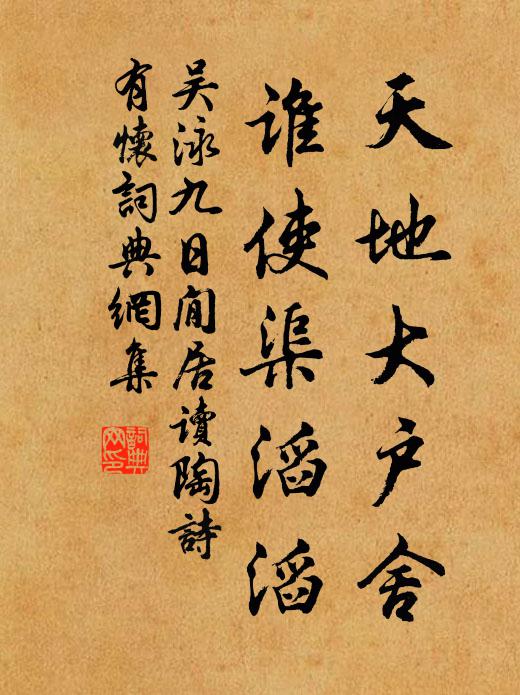 天地大户舍
谁使渠滔滔
吴泳九日闲居讀陶詩
有懷詞典網集
詞典
网印